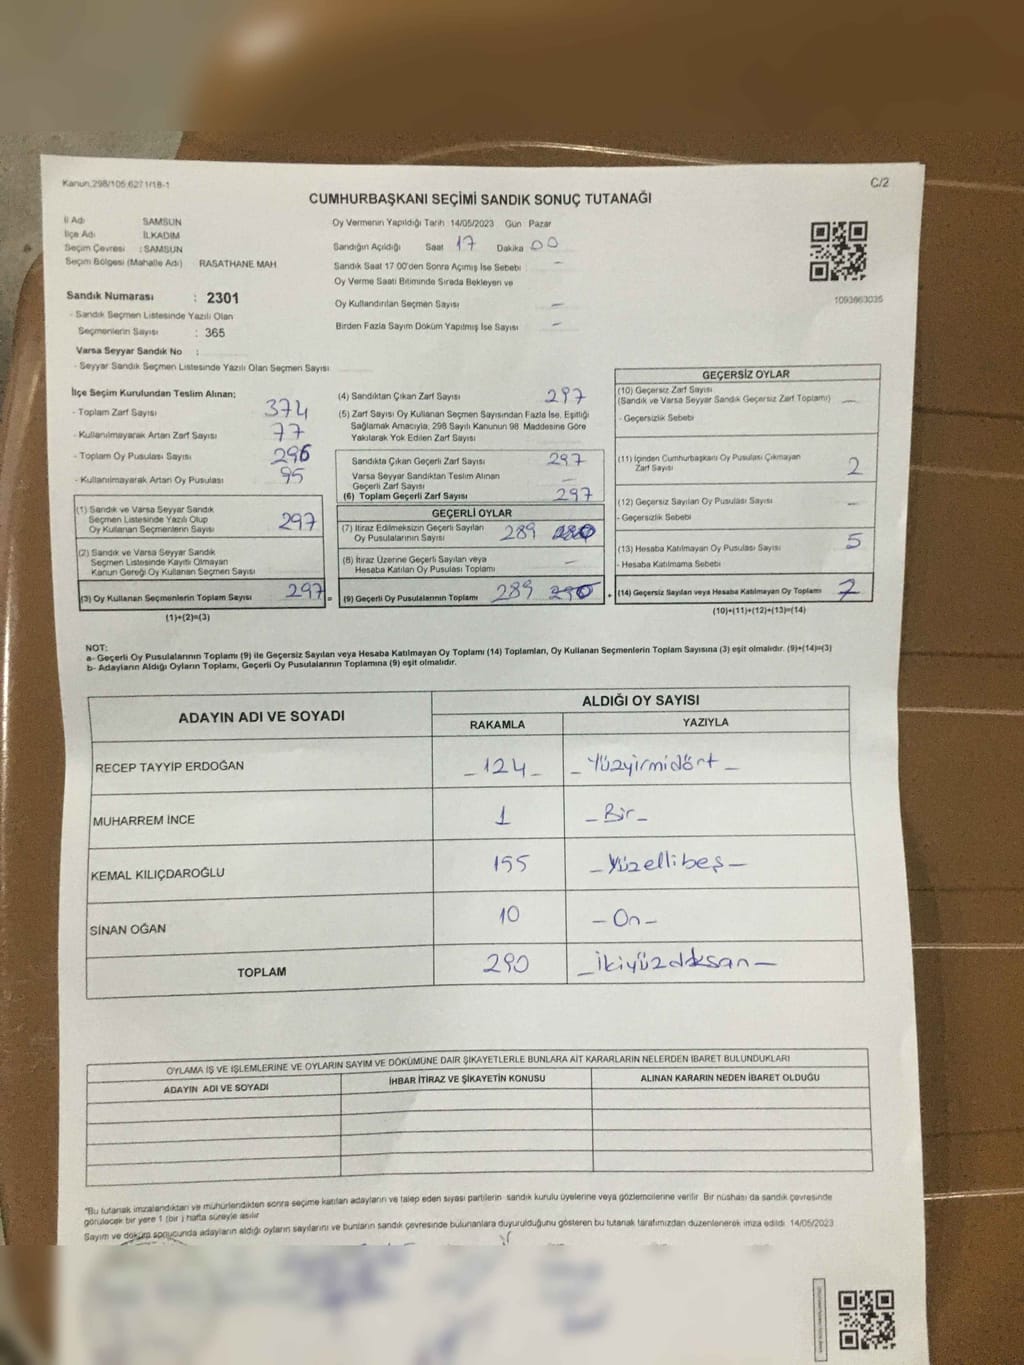 Kanun.298/105.6271/18-1
C/2
CUMHURBAŞKANI SEÇİMİ SANDIK SONUÇ TUTANAĞI
İl Adı SAMSUN
İlçe Adı İLKADIM
Seçim Çevresi : SAMSUN
Seçim Bölgesi (Mahalle Adı) RASATHANE MAH
Sandık Numarası : 2301
- Sandık Seçmen Listesinde Yazılı Olan
Seçmenlerin Sayısı : 365
Varsa Seyyar Sandık No :
- Seyyar Sandık Seçmen Listesinde Yazılı Olan Seçmen Sayısı
Oy Vermenin Yapıldığı Tarih 14/05/2023 Gün Pazar
Sandığın Açıldığı Saat 17 Dakika 00
Sandık Saat 17 00'den Sonra Açımış İse Sebebi –
Oy Verme Saati Bitiminde Sırada Bekleyen ve
Oy Kullandırılan Seçmen Sayısı –
Birden Fazla Sayım Döküm Yapılmış İse Sayısı –
1093863035
İlçe Seçim Kurulundan Teslim Alınan;
- Toplam Zarf Sayısı 374
- Kullanılmayarak Artan Zarf Sayısı 77
- Toplam Oy Pusulası Sayısı 296
- Kullanılmayarak Artan Oy Pusulası 95
(1) Sandık ve Varsa Seyyar Sandık
Seçmen Listesinde Yazılı Olup
Oy Kullanan Seçmenlerin Sayısı 297
(2) Sandık ve Varsa Seyyar Sandık
Seçmen Listesinde Kayıtlı Olmayan
Kanun Gereği Oy Kullanan Seçmen Sayısı
(3) Oy Kullanan Seçmenlerin Toplam Sayısı 297 =
(1)+(2)=(3)
(4) Sandıktan Çıkan Zarf Sayısı 297
(5) Zarf Sayısı Oy Kullanan Seçmen Sayısından Fazla İse, Eşitliği
Sağlamak Amacıyla, 298 Sayılı Kanunun 98. Maddesine Göre
Yakılarak Yok Edilen Zarf Sayısı
Sandıkta Çıkan Geçerli Zarf Sayısı 297
Varsa Seyyar Sandıktan Teslim Alınan
Geçerli Zarf Sayısı –
(6) Toplam Geçerli Zarf Sayısı 297
GEÇERLİ OYLAR
(7) İtiraz Edilmeksizin Geçerli Sayılan
Oy Pusulalarının Sayısı 289
(8) İtiraz Üzerine Geçerli Sayılan veya
Hesaba Katılan Oy Pusulası Toplamı –
(9) Geçerli Oy Pusulalarının Toplamı 289 290 +
GEÇERSİZ OYLAR
(10) Geçersiz Zarf Sayısı
(Sandık ve Varsa Seyyar Sandık Geçersiz Zarf Toplamı) –
- Geçersizlik Sebebi
(11) İçinden Cumhurbaşkanı Oy Pusulası Çıkmayan
Zarf Sayısı 2
(12) Geçersiz Sayılan Oy Pusulası Sayısı –
- Geçersizlik Sebebi
(13) Hesaba Katılmayan Oy Pusulası Sayısı 5
- Hesaba Katılmama Sebebi
(14) Geçersiz Sayılan veya Hesaba Katılmayan Oy Toplamı 7
(10)+(11)+(12)+(13)=(14)
NOT:
a- Geçerli Oy Pusulalarının Toplamı (9) ile Geçersiz Sayılan veya Hesaba Katılmayan Oy Toplamı (14) Toplamları, Oy Kullanan Seçmenlerin Toplam Sayısına (3) eşit olmalıdır. (9)+(14)=(3)
b- Adayların Aldığı Oyların Toplamı, Geçerli Oy Pusulalarının Toplamına (9) eşit olmalıdır.
ADAYIN ADI VE SOYADI
ALDIĞI OY SAYISI
RAKAMLA YAZIYLA
RECEP TAYYİP ERDOĞAN –124– –Yüzyirmidört–
MUHARREM İNCE 1 –Bir–
KEMAL KILIÇDAROĞLU 155 –Yüzellibeş–
SİNAN OĞAN 10 –On–
TOPLAM 290
OYLAMA İŞ VE İŞLEMLERİNE VE OYLARIN SAYIM VE DÖKÜMÜNE DAİR ŞİKAYETLERLE BUNLARA AİT KARARLARIN NELERDEN İBARET BULUNDUKLARI
ADAYIN ADI VE SOYADI İHBAR İTİRAZ VE ŞİKAYETİN KONUSU ALINAN KARARIN NEDEN İBARET OLDUĞU
*Bu tutanak imzalandıktan ve mühürlendikten sonra seçime katılan adayların ve talep eden siyasi partilerin sandık kurulu üyelerine veya gözlemcilerine verilir. Bir nüshası da sandık çevresinde
görülecek bir yere 1 (bir) hafta süreyle asılır
Sayım ve döküm sonucunda adayların aldığı oyların sayılarını ve bunların sandık çevresinde bulunanlara duyurulduğunu gösteren bu tutanak tarafımızdan düzenlenerek imza edildi. 14/05/2023